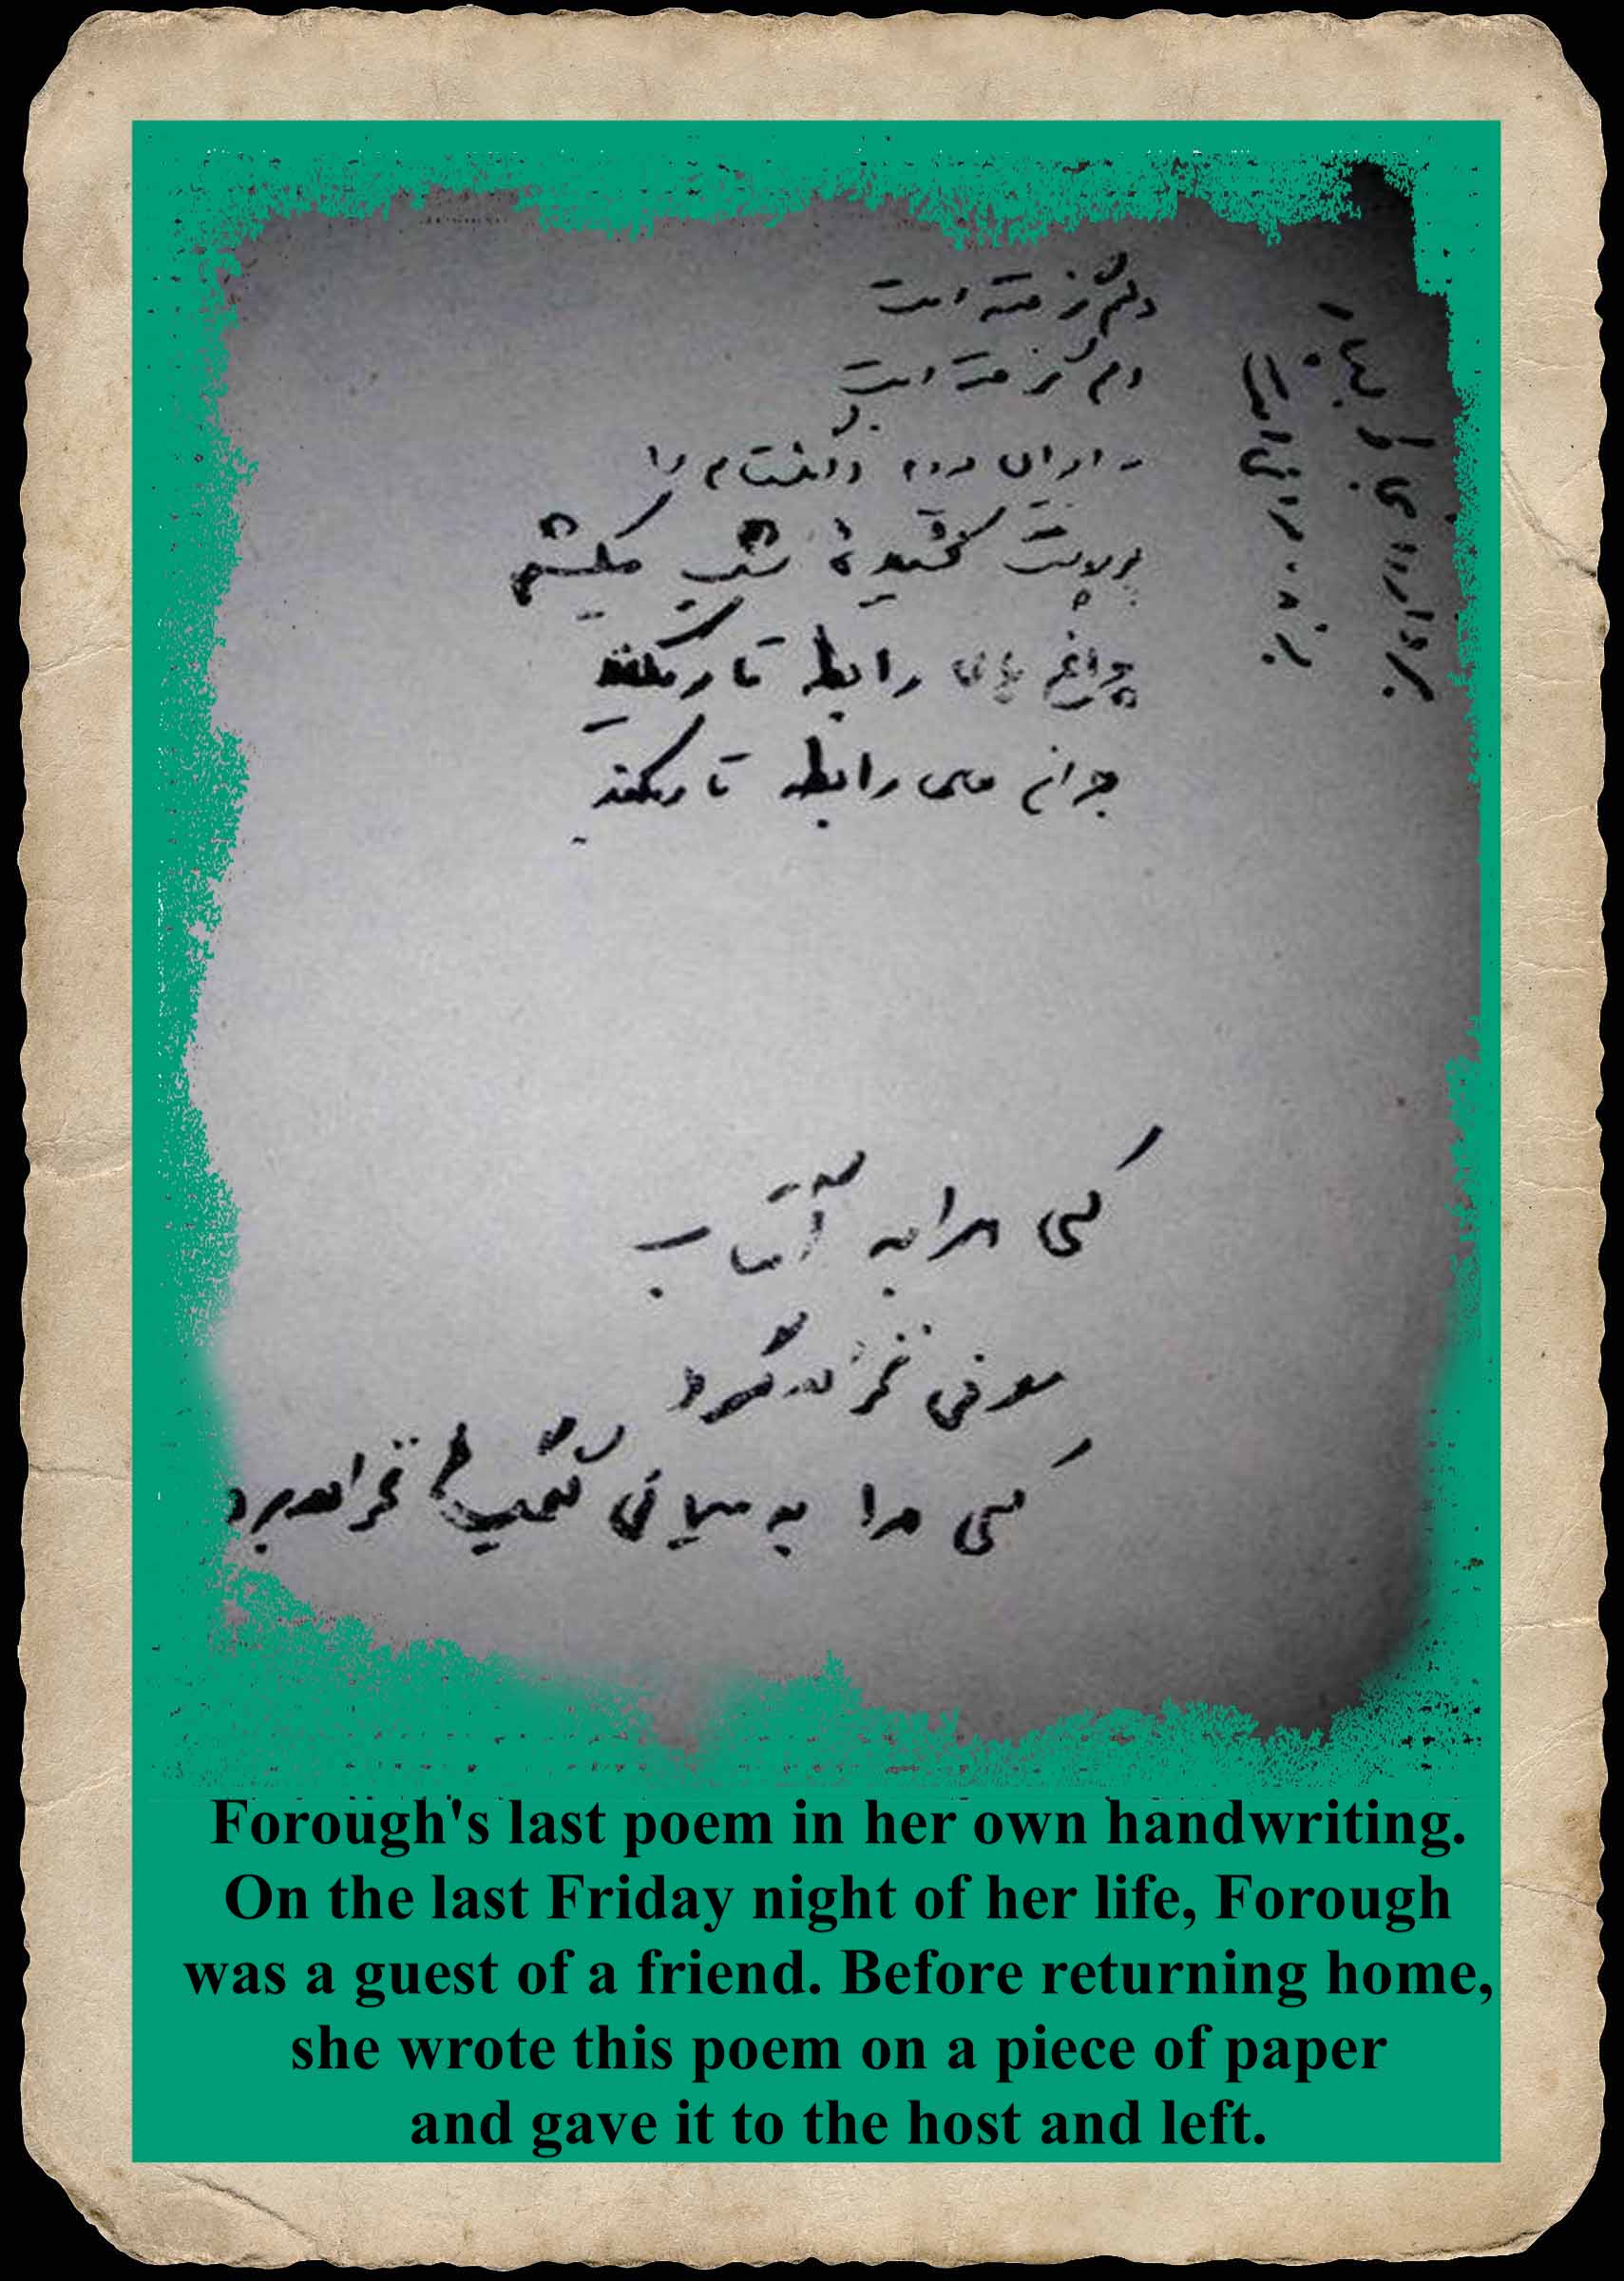 دلم گرفته است
دلم گرفته است
به ایوان میروم و انگشتانم را
بر پوست کشیدهٔ شب میکشم
چراغ های رابطه تاریکند
چراغ های رابطه تاریکند
کسی مرا به آفتاب
معرفی نخواهد کرد
کسی مرا به میهمانی گنجشک ها نخواهد برد
Forough's last poem in her own handwriting.
On the last Friday night of her life, Forough
was a guest of a friend. Before returning home,
she wrote this poem on a piece of paper
and gave it to the host and left.